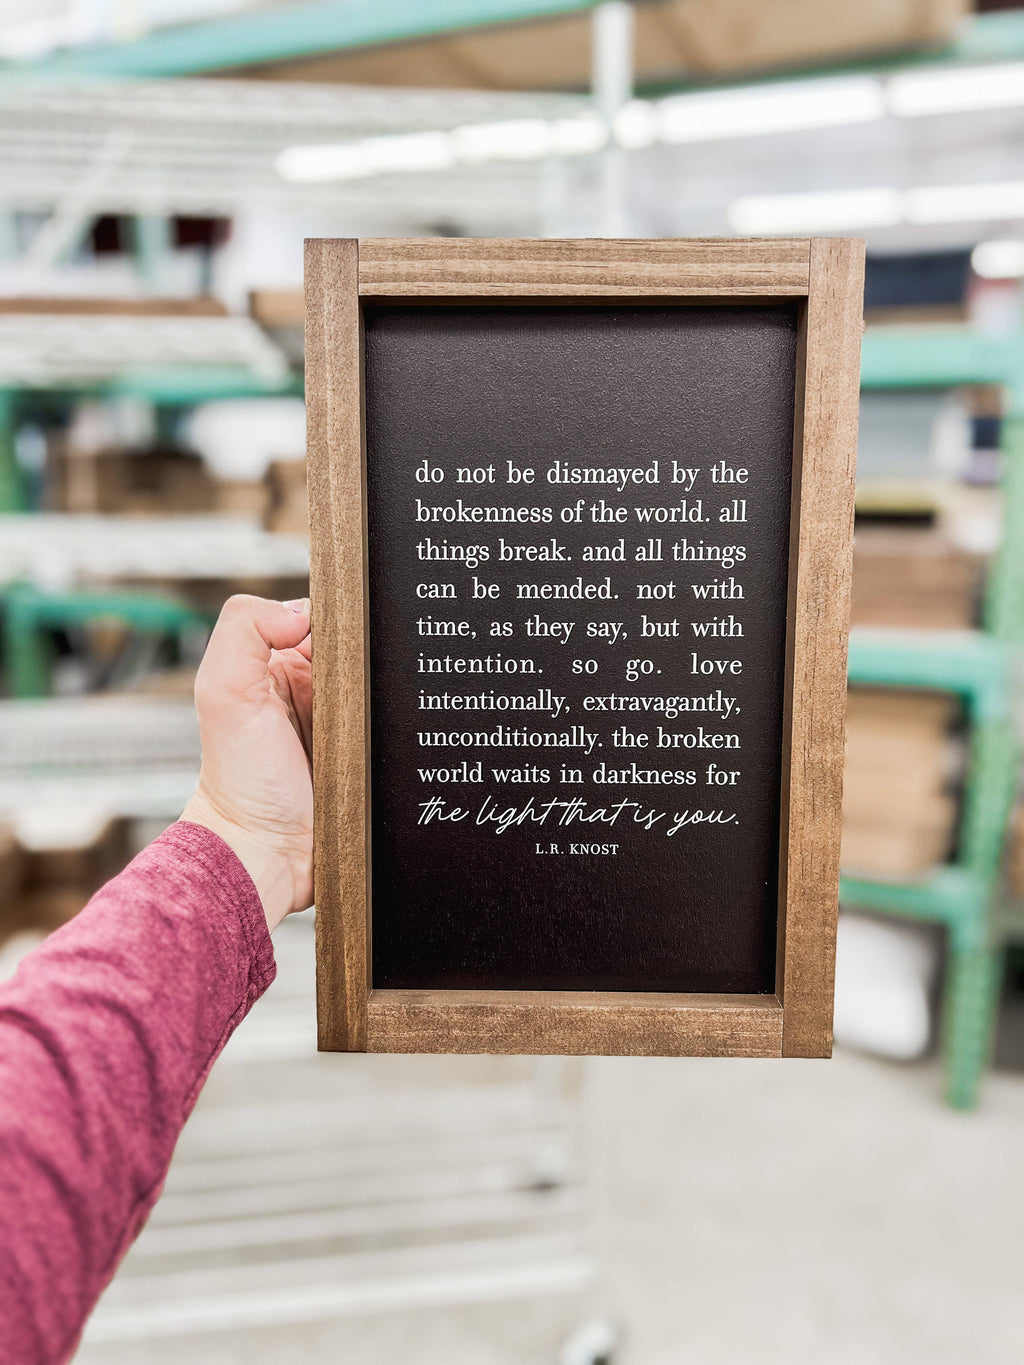 do not be dismayed by the
brokenness of the world. all
things break. and all things
can be mended. not with
time, as they say, but with
intention. so go. love
intentionally, extravagantly,
unconditionally. the broken
world waits in darkness for
the light that is you.
L.R. KNOST